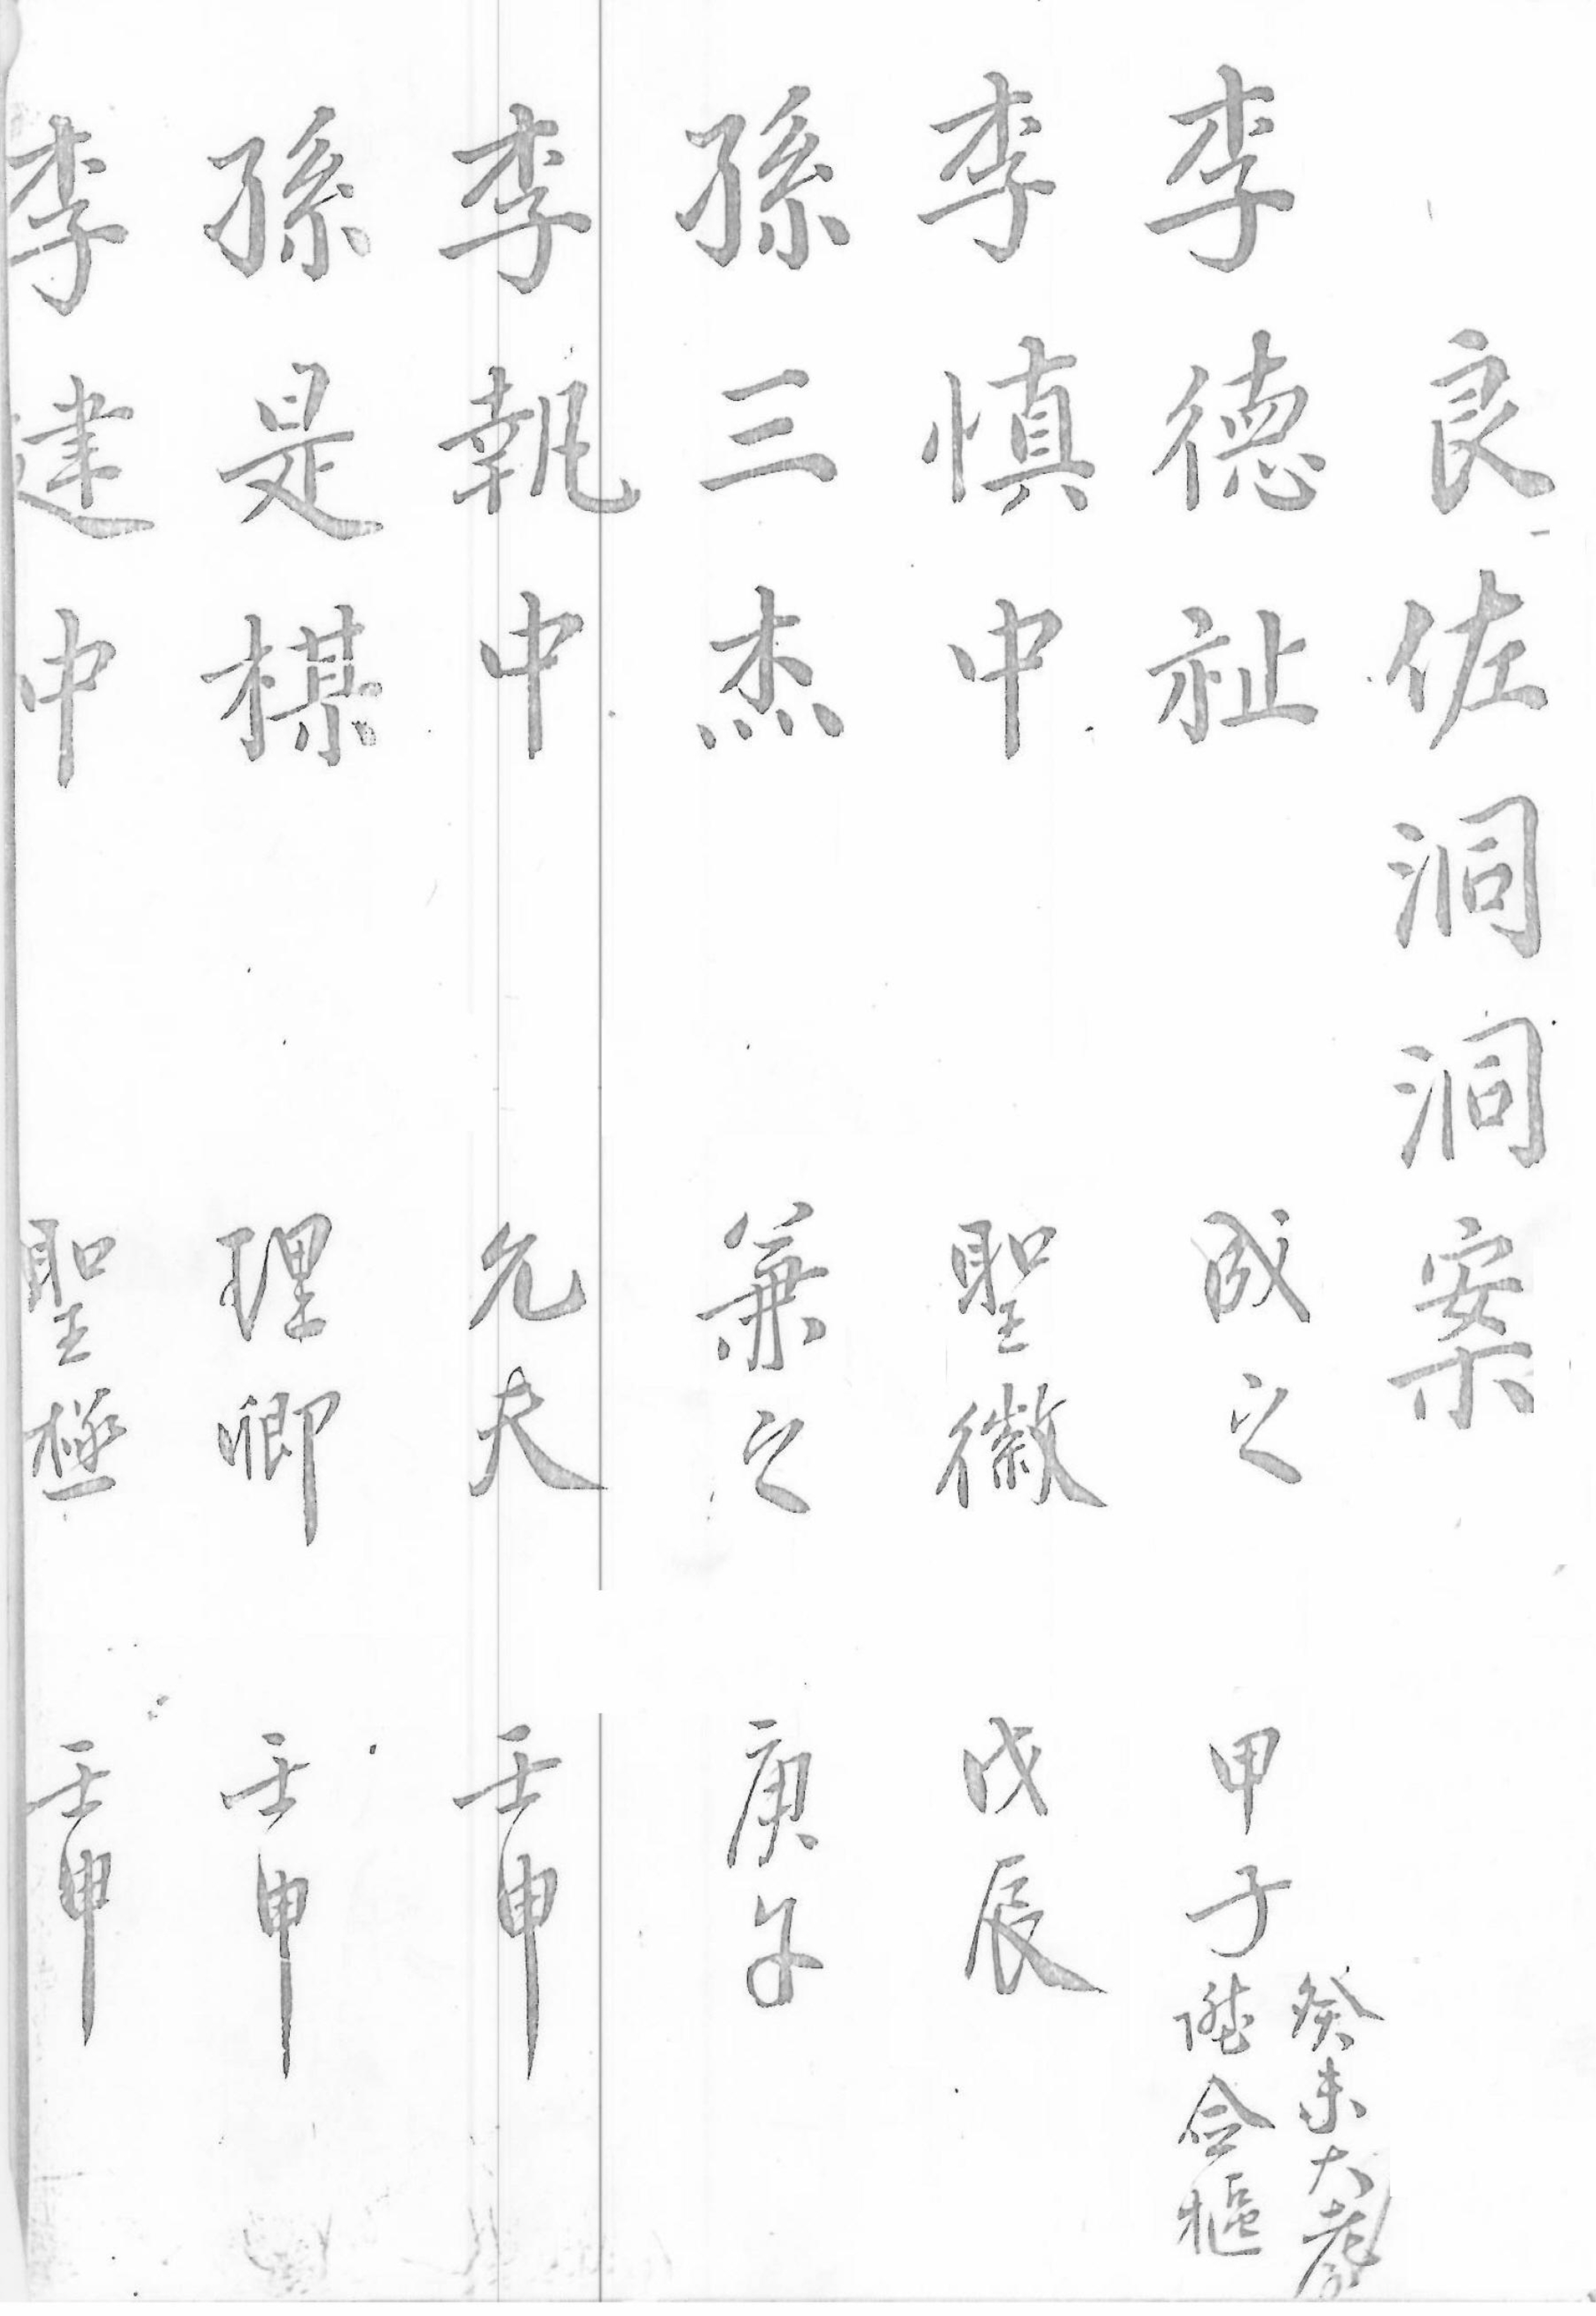 良佐洞洞案
李德祉 成之 甲子 癸未大 陞僉樞
李慎中 聖徽 戊辰
孫三杰 兼之 庚午
李執中 允夫 壬申
孫是楳 理卿 壬申
李建中 聖極 壬申